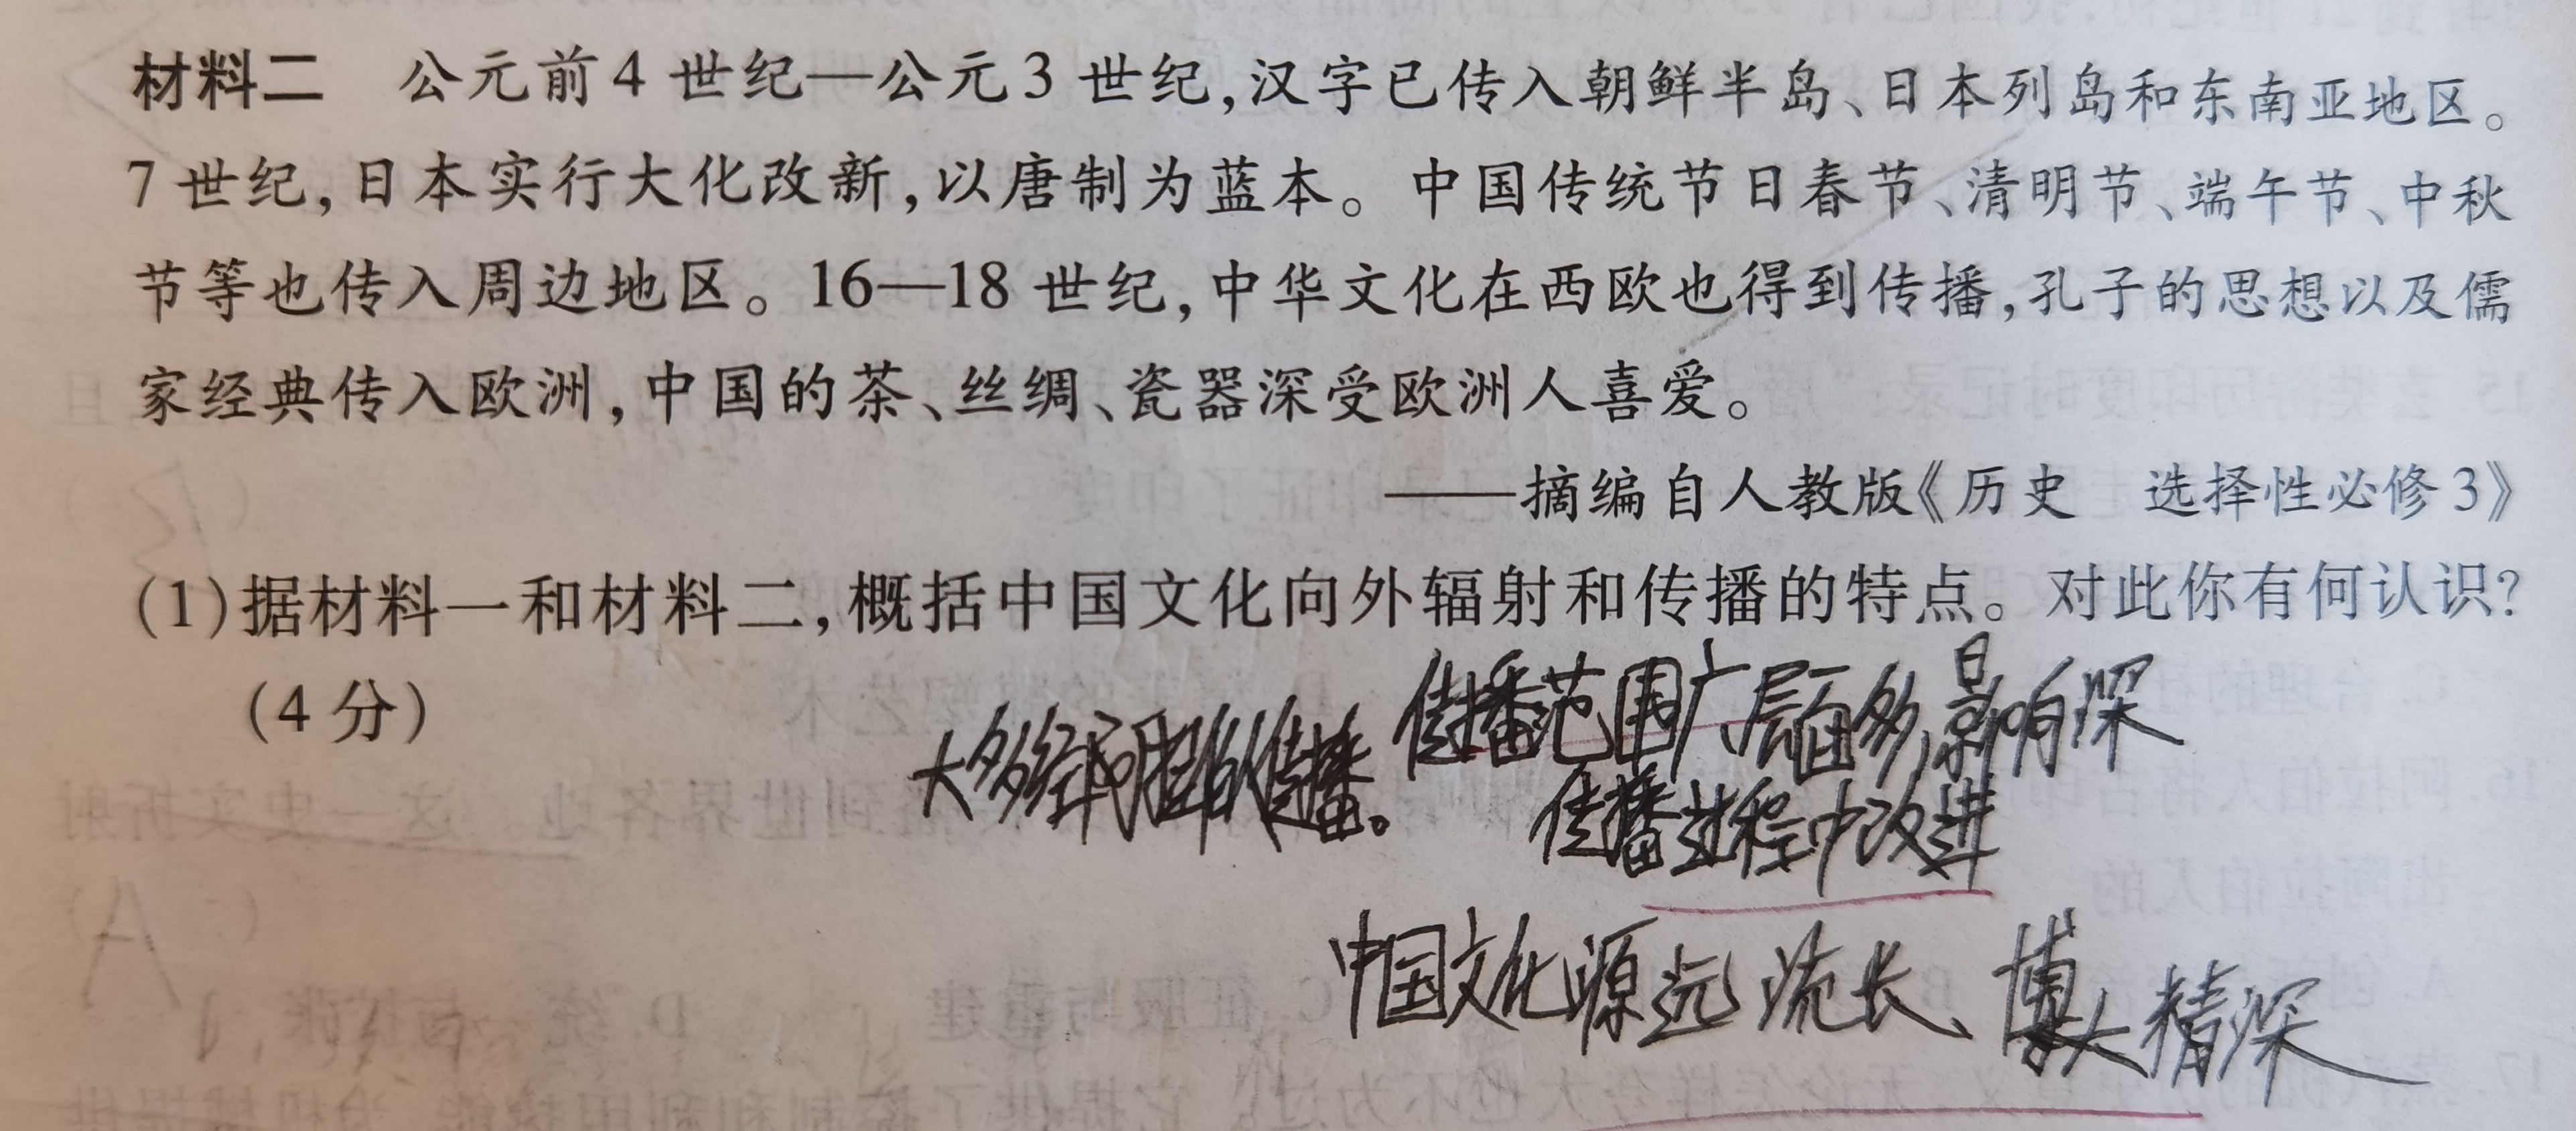 材料二　公元前4世纪—公元3世纪,汉字已传入朝鲜半岛、日本列岛和东南亚地区。
7世纪,日本实行大化改新,以唐制为蓝本。中国传统节日春节、清明节、端午节、中秋
节等也传入周边地区。16—18世纪,中华文化在西欧也得到传播,孔子的思想以及儒
家经典传入欧洲,中国的茶、丝绸、瓷器深受欧洲人喜爱。
——摘编自人教版《历史　选择性必修3》
(1)据材料一和材料二,概括中国文化向外辐射和传播的特点。对此你有何认识?
(4分)
传播范围广,层面多,影响深
大多经阿拉伯传播。
传播过程中改进
中国文化源远流长、博大精深